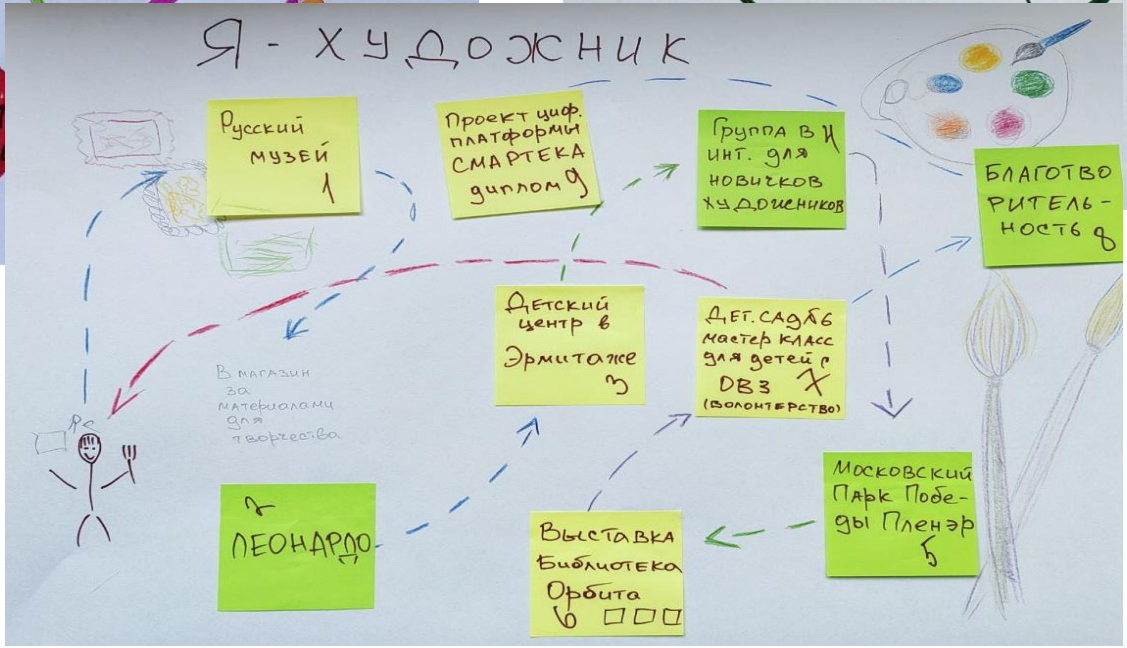 Я - ХУДОЖНИК
Русский
музей
1
Проект циф.
платформы
СМАРТЕКА
диплом 9
Группа в 4
инт. для
новичков
художников
БЛАГОТВО
РИТЕЛЬ-
НОСТЬ 8
Детский
центр в
Эрмитаже
3
ДЕТ. САД №6
мастер класс
для детей с
ОВЗ 7
(волонтерство)
В магазин
за
материалами
для
творчества
2
ЛЕОНАРДО
Выставка
Библиотека
Орбита
6
Московский
Парк Побе-
ды Пленэр
5